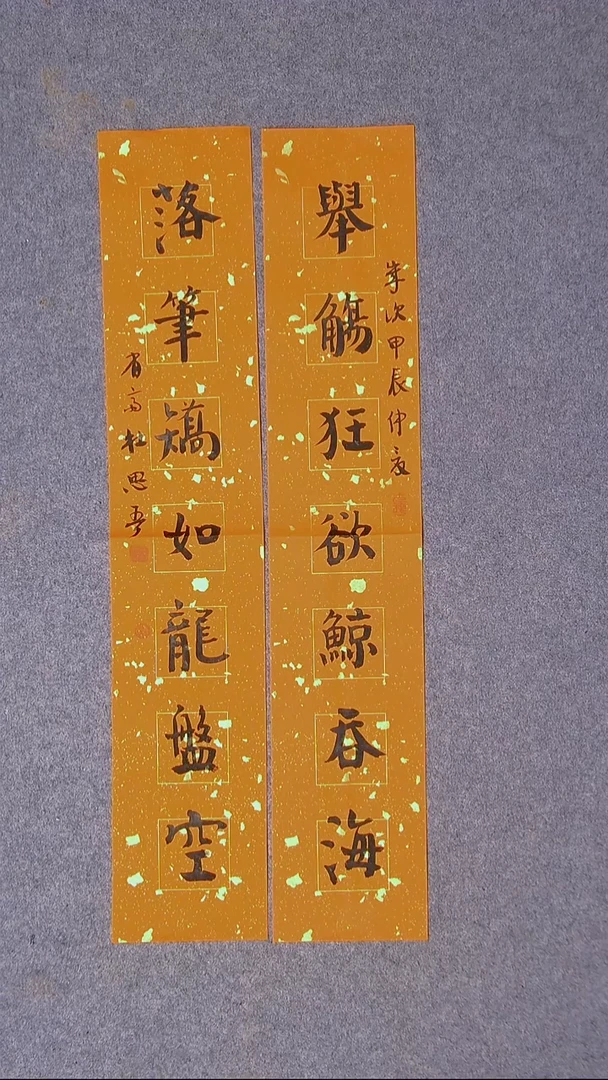 舉觴狂欲鯨吞海
歲次甲辰仲夏
落筆矯如龍盤空
省高杜思吾